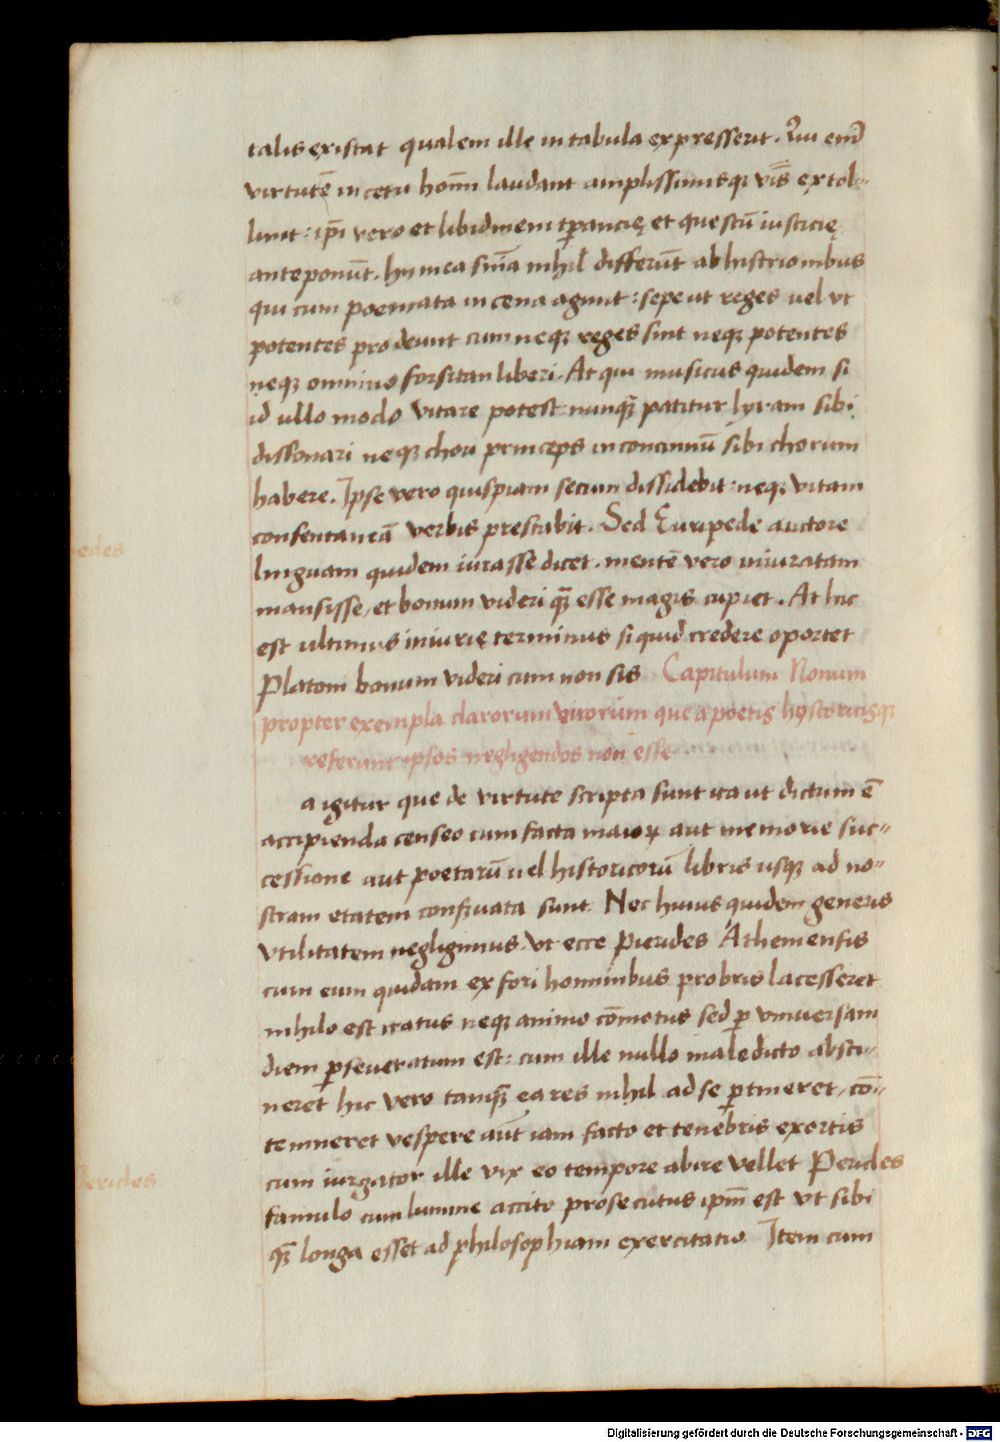 talis existat qualem ille in tabula expresserit. Qui em̄
virtutē in cetu hoīm laudant amplissimisq; vīs extol⸗
lunt: ip̄i vero et libidinem tꝑancię et questū iusticię
anteponūt. hij mea sn̄ia nihil differūt ab histrionibus
qui cum poemata in cena agunt: sepe ut reges uel vt
potentes prodeunt cum neq; reges sint neq; potentes
neq; omnino forsitan liberi. Atqui musicus quidem si
id ullo modo vitare potest nunq̄ patitur lyram sibi
dissonari neq; chori princeps inconcinnū sibi chorum
habere. Ipse vero quispiam secum dissidebit: neq; vitam
consentaneā verbis prestabit. Sed Euripede auctore
linguam quidem iurasse dicet. mentē vero iniuratam
mansisse, et bonum videri q̄ esse magis cupiet. At hic
est ultimus iniurię terminus si quid credere oportet
Platoni bonum videri cum non sis Capitulum Nonum
propter exempla clarorum virorum que a poetis hystoricisq;
referuntur ipsos negligendos non esse
a igitur que de virtute scripta sunt ita ut dictum ē
accipienda censeo cum facta maioꝝ aut memorie suc⸗
cessione aut poetarū uel historicorū libris usq; ad no⸗
stram etatem conseruata sunt Nec huius quidem generis
vtilitatem negligimus. Vt ecce Pierides Atheniensis
cum eum quidam ex fori hominibus probris lacesseret
nihilo est iratus neq; animo cōmotus sed ꝑ vniuersam
diem ꝑseueratum est: cum ille nullo maledicto absti⸗
neret hic vero tanq̄ ea res nihil ad se ꝑtineret, cō⸗
temneret vespere aūt iam facto et tenebris exortis
cum iurgator ille vix eo tempore abire vellet Perides
famulo cum lumine accito prosecutus ip̄m est vt sibi
q̄ longa esset ad philosophiam exercitatio Item cum
pedes
Perides
Digitalisierung gefördert durch die Deutsche Forschungsgemeinschaft - DFG